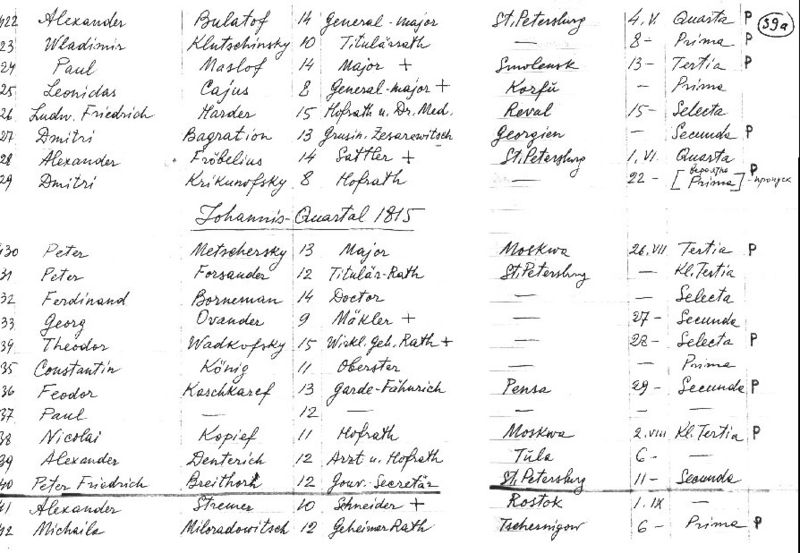 422 Alexander Bulatof 14 General-major St. Petersburg 4. V. Quarta P 59a
23 Wladimir Klutschinsky 10 Titulärrath — 8 – Prima P
24 Paul Maslof 14 Major + Smolensk 13 – Tertia P
25 Leonidas Cajus 8 General-major + Korfu – Prima
26 Ludw. Friedrich Harder 15 Hofrath u. Dr. Med. Reval 15 – Selecta
27 Dmitri Bagration 13 Grusin. Zesarewitsch Georgien – Secunda P
28 Alexander Fröbelius 14 Sattler + St. Petersburg 1. VI. Quarta
29 Dmitri Krikunofsky 8 Hofrath — 22 – [вероятно Prima] P - пропуск
Johannis-Quartal 1815
430 Peter Metschersky 13 Major Moskwa 26. VII Tertia P
31 Peter Forsander 12 Titulär-Rath St. Petersburg — Kl. Tertia
32 Ferdinand Borneman 14 Doctor — — Selecta
33 Georg Ovander 9 Mäkler + — 27 – Secunda
34 Theodor Wadkofsky 15 Wirkl. Geh. Rath + — 28 – Selecta P
35 Constantin König 11 Oberster — — Prima
36 Feodor Kaschkaref 13 Garde-Fähnrich Pensa 29 – Secunda P
37 Paul — 12 — — — —
38 Nicolai Kopief 11 Hofrath Moskwa 2. VIII Kl. Tertia P
39 Alexander Denterich 12 Arzt u. Hofrath Tula 6 – —
40 Peter Friedrich Breithork 12 Gouv. Secretär St. Petersburg 11 – Secunda
41 Alexander Stremer 10 Schneider + Rostok 1. IX —
42 Michaila Miloradowitsch 12 Geheimer Rath Tschernigow 6 – Prima P